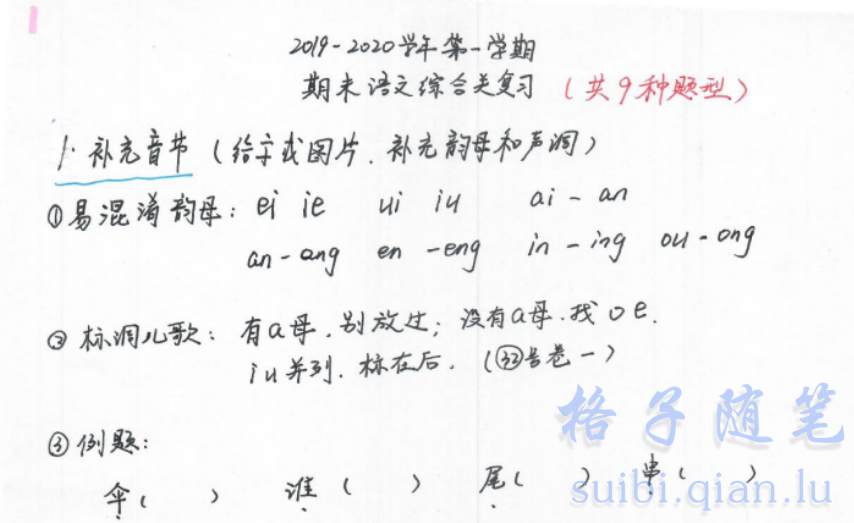 1
2019-2020学年第一学期
期末语文综合类复习（共9种题型）
1.补充音节（给字或图片.补充韵母和声调）
①易混淆韵母：ei ie ui iu ai-an
an-ang en-eng in-ing ou-ong
②标调儿歌：有a母.别放过；没有a母.找o e.
iu并列.标在后.（㉜号卷一）
③例题：
伞（ ）谁（ ） 尾（ ） 串（ ）
格子随笔
suibi.qian.lu